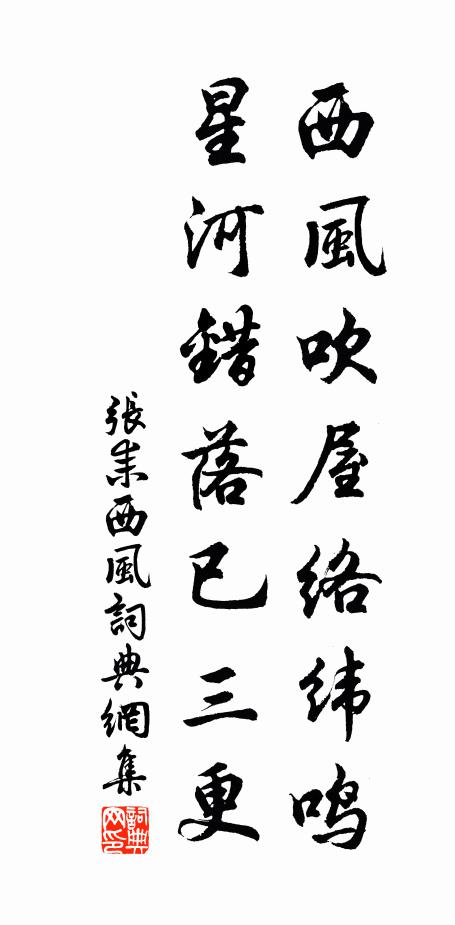 西風吹屋络纬鸣
星河錯落已三更
張耒西風詞典網集
詞典网印